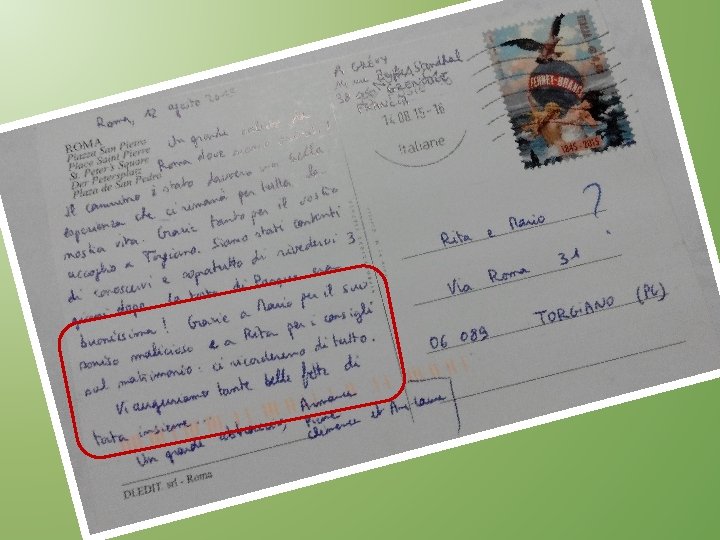 Roma, 12 agosto
ROMA
Piazza San Pietro
Place Saint Pierre
St. Peter's Square
Der Petersplatz
Plaza de San Pedro
Un grande saluto da
Roma dove siamo
Il cammino è stato davvero una bella
esperienza che ci rimarrà per tutta la
nostra vita. Grazie tanto per il vostro
accoglio a Torgiano. Siamo stati contenti
di conoscervi e sopratutto di rivedervi 3
giorni dopo. La torta di Pasqua era
buonissima! Grazie a Mario per il suo
sorriso malicioso e a Rita per i consigli
sul matrimonio: ci ricorderemo di tutto.
Vi auguriamo tante belle fette di
torta insieme.
Un grande abbraccio, Armance
Clémence et
DLEDIT. srl - Roma
A GRÉVY
rue Stendhal
38 GRENOBLE
FRANCIA
14.08.15-16
Italiane
FERNET-BRANCA
1845-2015
Rita e Mario ?
Via Roma 31
06089 TORGIANO (PG)